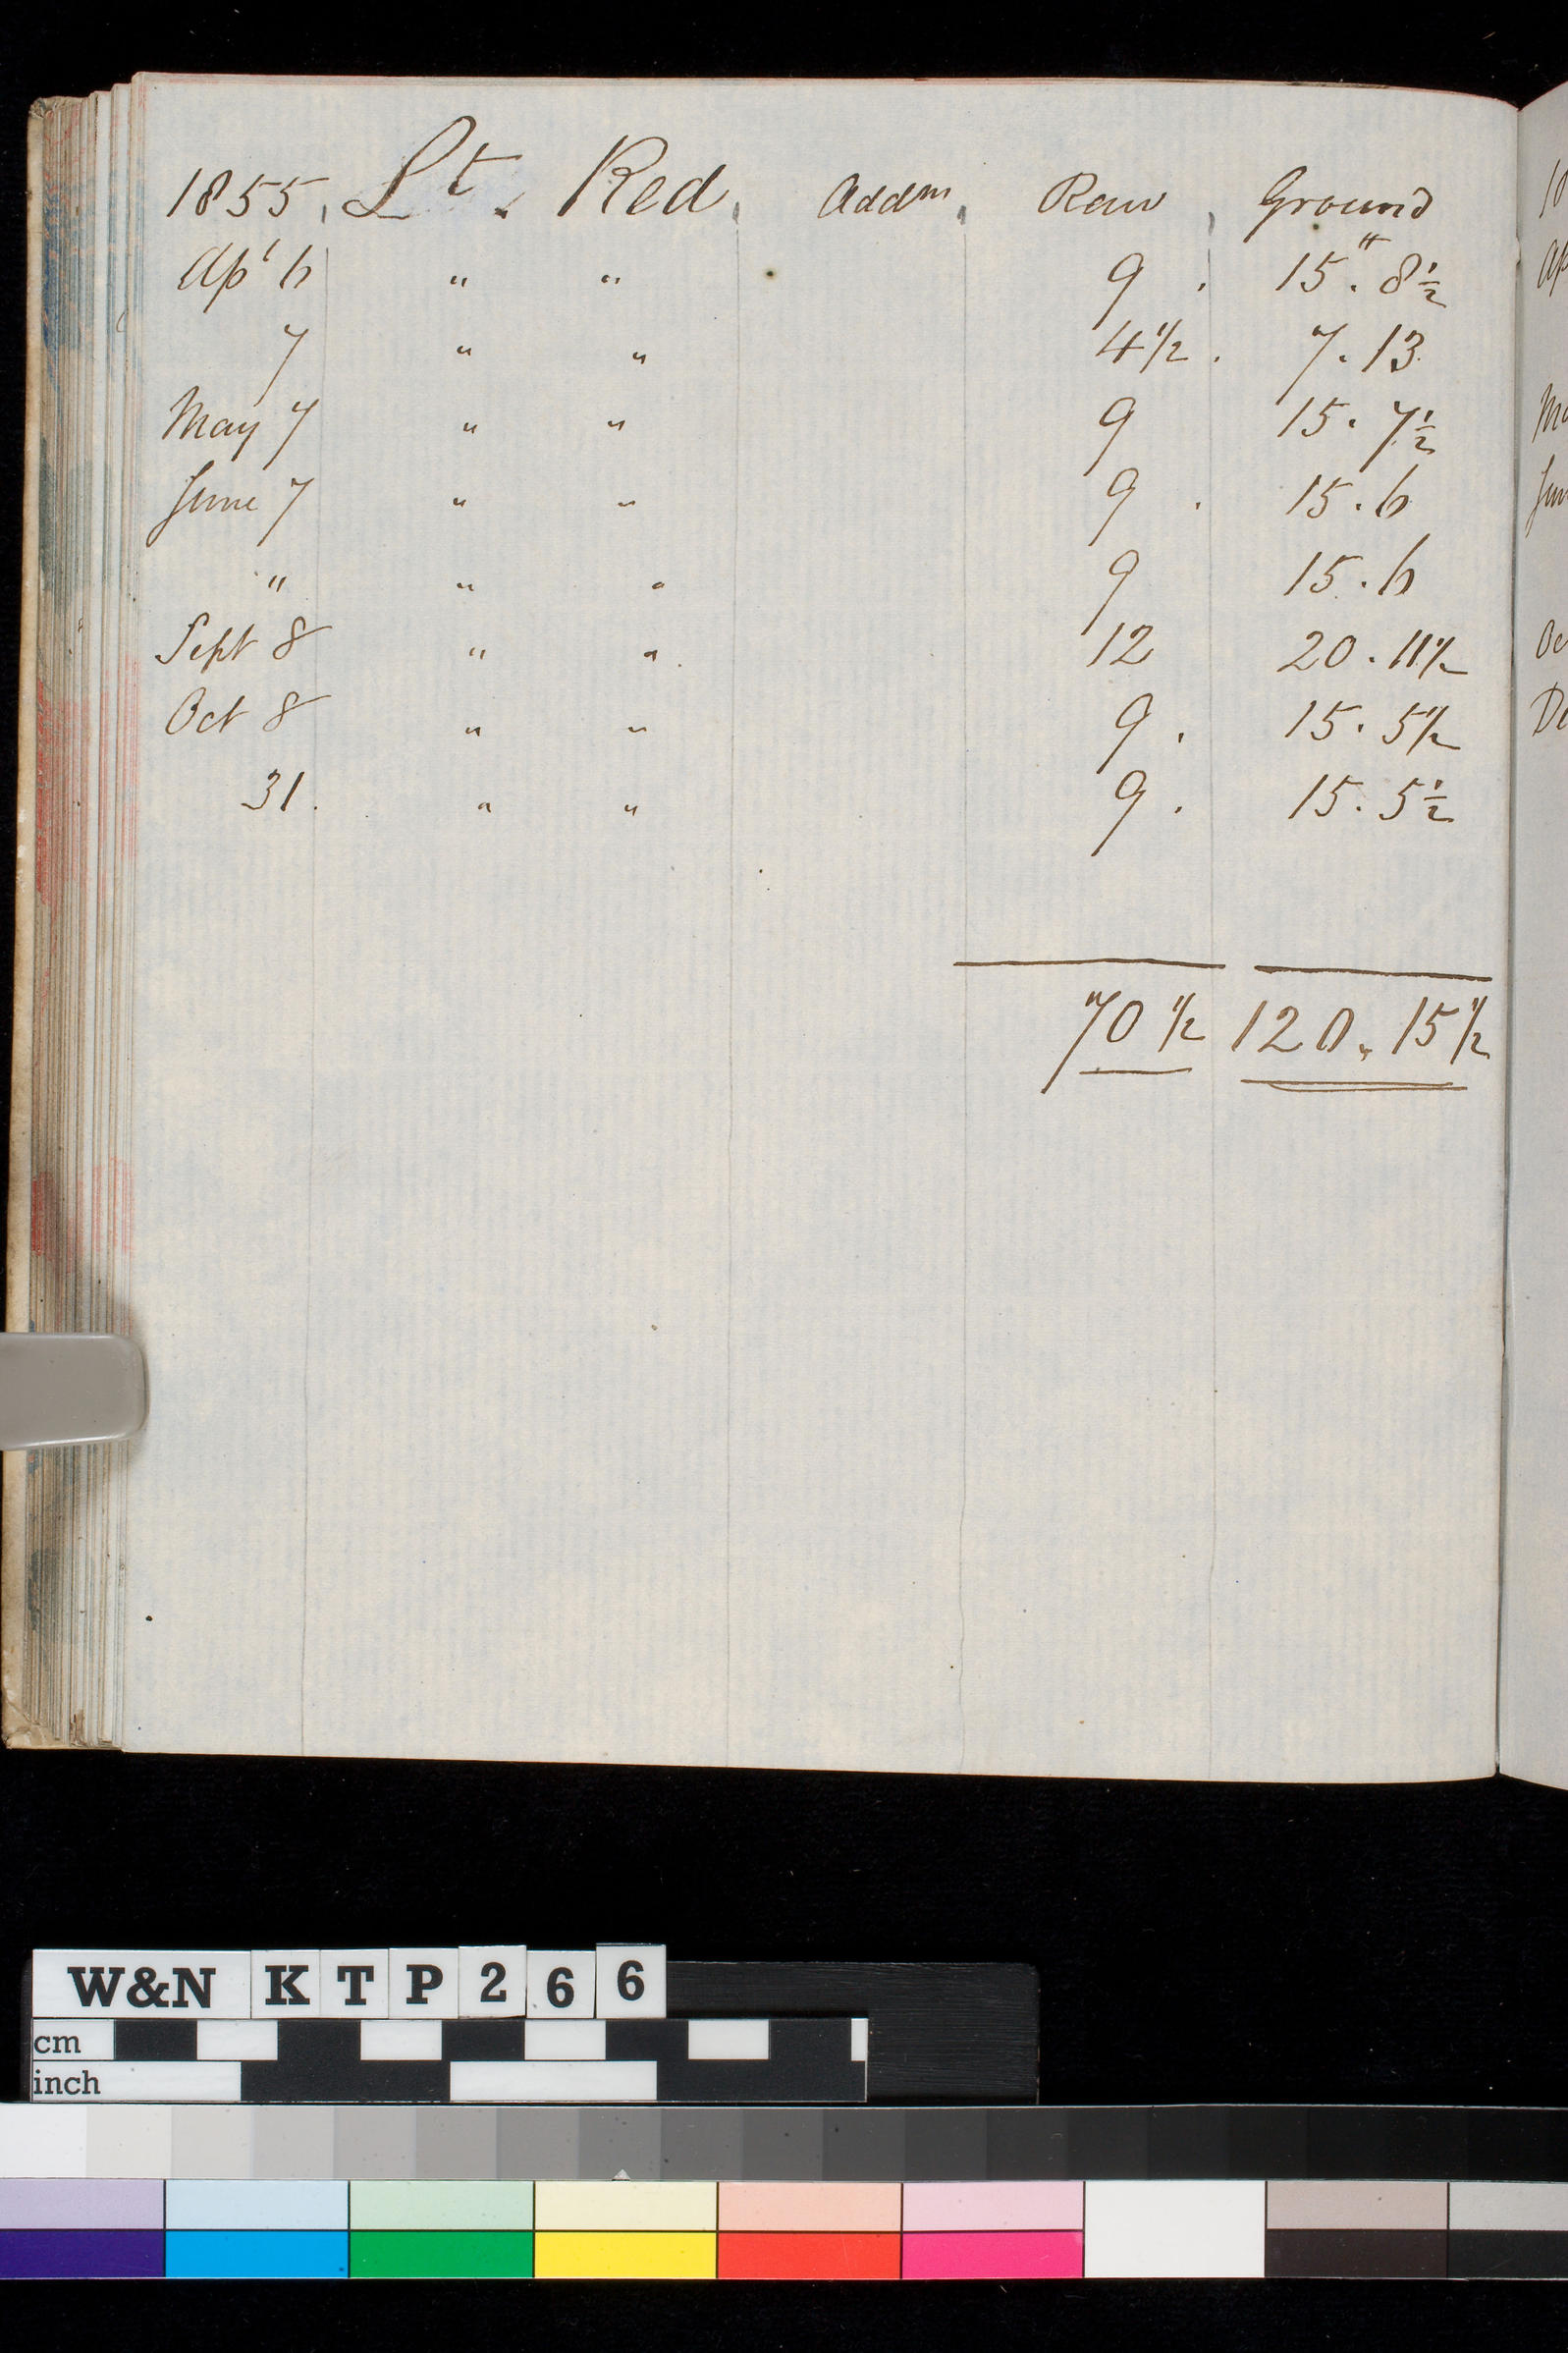 1855, Lt. Red, Addns, Raw, Ground
Apl 6 " " 9 . 15 . 8½
7 " " 4½ . 7 . 13
May 7 " " 9 15 . 7½
June 7 " " 9 . 15 . 6
" " " 9 15 . 6
Sept 8 " " 12 20 . 11½
Oct 8 " " 9 . 15 . 5½
31 . " " 9 . 15 . 5½
70½ 120 . 15½
W&N KTP266
cm
inch